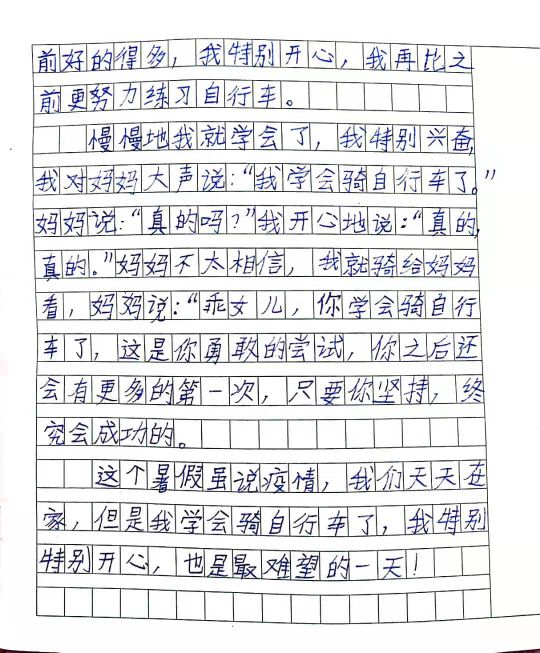 前好的得多，我特别开心，我再比之
前更努力练习自行车。
慢慢地我就学会了，我特别兴奋，
我对妈妈大声说：“我学会骑自行车了。”
妈妈说：“真的吗？”我开心地说：“真的，
真的。”妈妈不太相信，我就骑给妈妈
看，妈妈说：“乖女儿，你学会骑自行
车了，这是你勇敢的尝试，你之后还
会有更多的第一次，只要你坚持，终
究会成功的。
这个暑假虽说疫情，我们天天在
家，但是我学会骑自行车了，我特别
特别开心，也是最难望的一天！